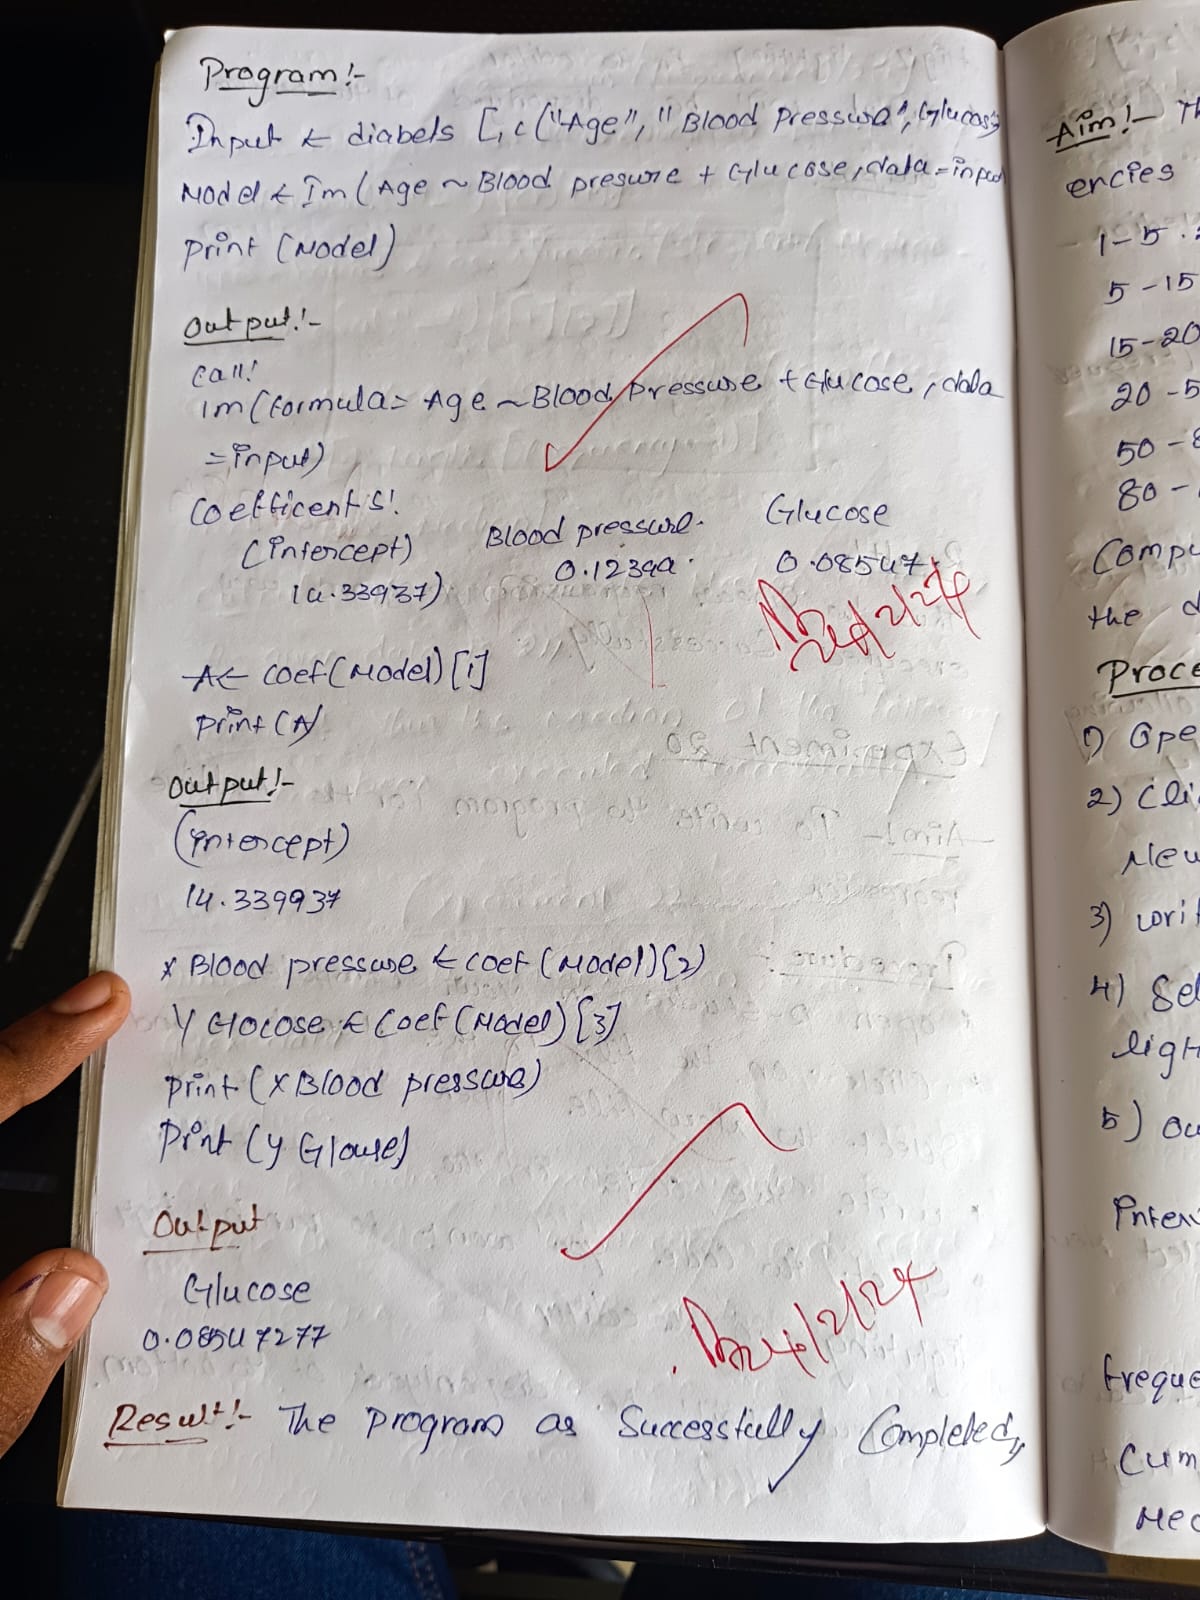 Program:-
Input ← diabels [, c ("Age", "Blood Pressure", Glucos
Model ← Im ( Age ~ Blood presure + Glucose, data = input
Print (Model)
Output:-
Call:
Im (formula = Age ~ Blood Pressure + Glucose, data
= input)
Coefficents:
Blood pressure. Glucose
(intercept) 0.08547
14.33937)
A ← Coef (Model) [1]
Print (A)
Output:-
(intercept)
14.339937
x Blood pressure ← Coef (Model) [2)
Y Glocose ← Coef (Model) [3]
Print (x Blood pressure)
Print (y Glouse)
Output
Glucose
0.08547277
24/2/24
Result:- The program as Successfully Completed,
Aim:- Th
encies
5 - 15
15 - 20
20 - 5
50 - 8
80 -
Compu
the d
Proce
1) Ope
2) Cli
New
3) Wri
4) Sel
ligh
5) Ou
Inter
Freque
Cum
Med